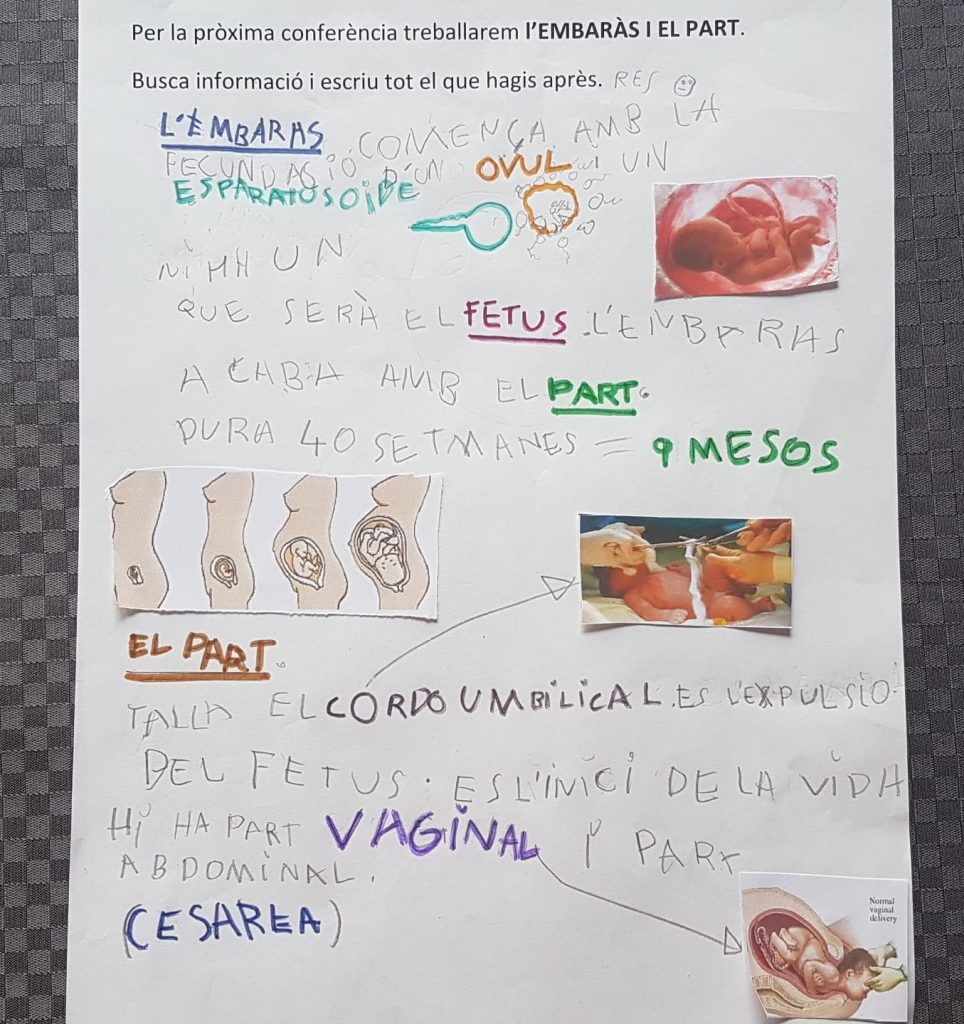 Per la pròxima conferència treballarem l'EMBARÀS I EL PART.
Busca informació i escriu tot el que hagis après. RES
L'EMBARAS COMENÇA AMB LA
FECUNDASIÓ D'UN OVUL UN
ESPARATOSOIDE
NI HA UN
QUE SERÀ EL FETUS. L'ENBARAS
ACABA AMB EL PART.
DURA 40 SETMANES = 9 MESOS
EL PART.
TALLA EL CORDO UMBILICAL. ES L'EXPULSIO
DEL FETUS. ES L'INICI DE LA VIDA
HI HA PART VAGINAL I PART
ABDOMINAL.
(CESAREA)
Normal
vaginal
delivery